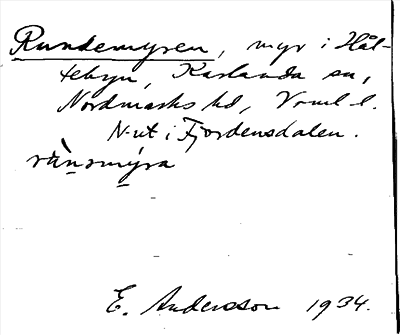 Rundemyren, myr i Hål-
tebyn, Karlanda sn,
Nordmarks hd, Vrml. l.
N-ut i Fjordensdalen.
E. Andersson 1934.